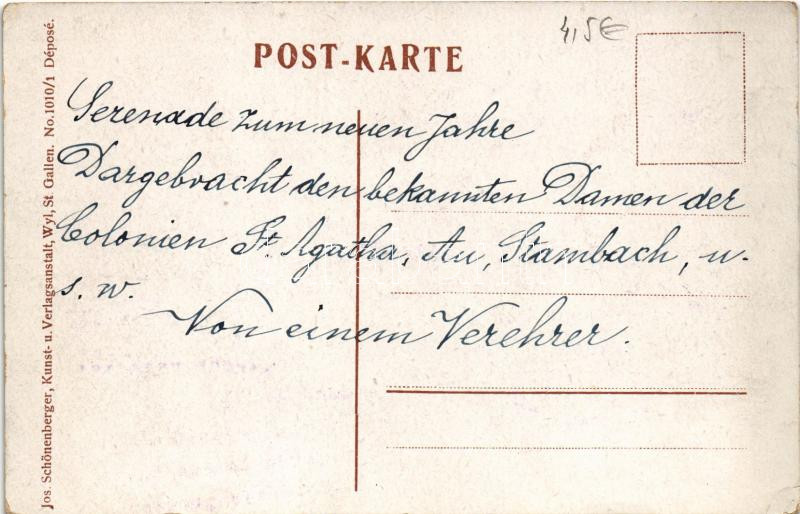 POST-KARTE
4,5€
Serenade zum neuen Jahre
Dargebracht den bekannten Damen der
Colonien St. Agatha, Au, Stambach, u.
s. w.
Von einem Verehrer.
Jos. Schönenberger, Kunst- u. Verlagsanstalt, Wyl, St. Gallen. No. 1010/1 Déposé.